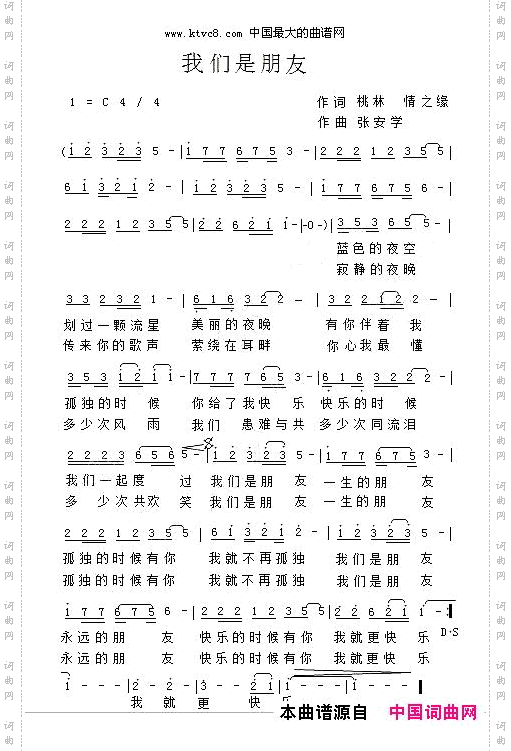 www.ktvc8.com 中国最大的曲谱网
我们是朋友
1 = C 4 / 4
作词 桃林 情之缘
作曲 张安学
(1 2 3 2 3 5 - | 1 7 7 6 7 5 3 - | 2 2 2 1 2 3 5 5 - |
6 1 3 2 1 2 - | 1 2 3 2 3 5 - | 1 7 7 6 7 5 6 - |
2 2 2 1 2 3 5 5 | 2 2 6 2 1 1 - | -0- ) | 3 5 3 6 5 5 - |
蓝色的夜空
寂静的夜晚
3 3 2 3 2 - | 6 1 6 3 2 2 - | 3 3 2 2 1 2 2 - |
划过一颗流星 美丽的夜晚 有你伴着 我
传来你的歌声 萦绕在耳畔 你心我最 懂
3 5 3 1 2 1 - | 7 7 7 7 6 5 3 - | 6 1 6 3 2 2 2 - |
孤独的时 候 你给了我快 乐 快乐的时 候
多少次风 雨 我们 患难与共 多少次同流泪
2 2 2 3 6 5 6 5 - | 1 2 3 2 3 5 - | 1 7 7 6 7 5 3 - |
我们一起度 过 我们是朋 友 一生的朋 友
多 少次共欢 笑 我们是朋 友 一生的朋 友
2 2 2 1 2 3 5 5 - | 6 1 3 2 1 2 - | 1 2 3 2 3 5 - |
孤独的时候有你 我就不再孤独 我们是朋 友
孤独的时候有你 我就不再孤独 我们是朋 友
1 7 7 6 7 5 6 - | 2 2 2 1 2 3 5 5 | 2 2 6 2 1 1 - :|
D·S
永远的朋 友 快乐的时候有你 我就更快 乐
永远的朋 友 快乐的时候有你 我就更快乐
1 - | 2 - 2 - | 6 - - 3 | 2 2 1 | 1 - | 1 - - - |
我 就 更 快 乐
本曲谱源自 中国词曲网
词曲网
词曲网
词曲网
词曲网
词曲网
词曲网
词曲网
词曲网
词曲网
词曲网